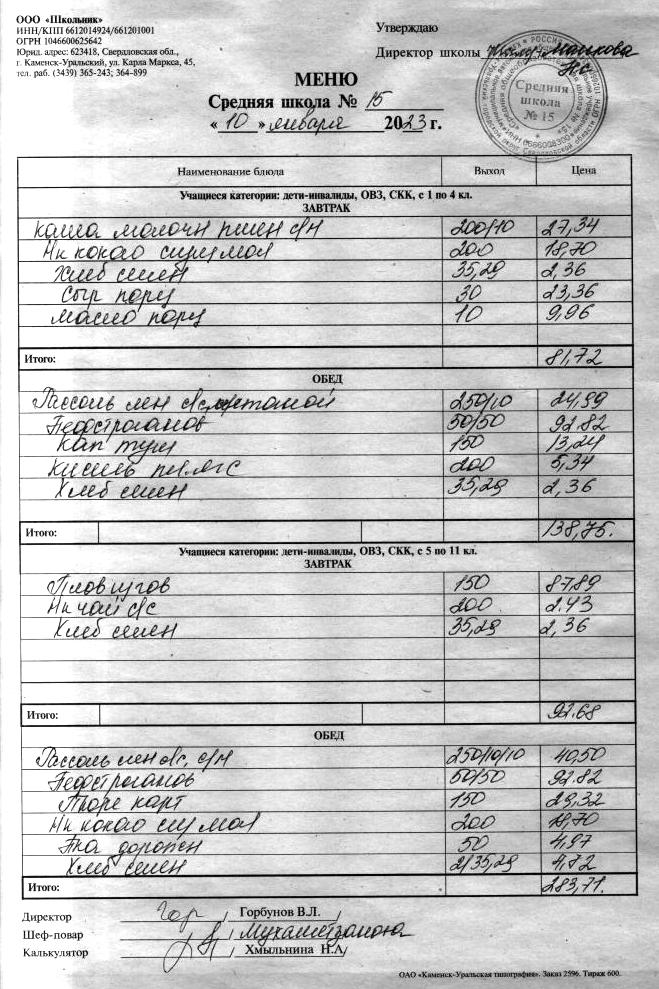 ООО «Школьник»
ИНН/КПП 6612014924/661201001
ОГРН 1046600625642
Юрид. адрес: 623418, Свердловская обл.,
г. Каменск-Уральский, ул. Карла Маркса, 45,
тел. раб. (3439) 365-243; 364-899
Утверждаю
Директор школы
Средняя
школа
№ 15
МЕНЮ
Средняя школа № 15
«10» января 2023 г.
Наименование блюда Выход Цена
Учащиеся категории: дети-инвалиды, ОВЗ, СКК, с 1 по 4 кл.
ЗАВТРАК
каша молочн пшен с/м 200/10 27,34
Нк какао сгущ мол 200 18,70
Хлеб 35,29 2,36
Сыр порц 30 23,36
Масло порц 10 9,96
Итого: 81,72
ОБЕД
Рассоль лен с/сметаной 250/10 24,99
Бефстроганов 50/50 92.82
Кап туш 150 13,24
Кисель 200 5,34
Хлеб 35,29 2,36
Итого: 138,75.
Учащиеся категории: дети-инвалиды, ОВЗ, СКК, с 5 по 11 кл.
ЗАВТРАК
Плов 150 87,89
Нк чай с/с 200 2.43
Хлеб 35,29 2,36
Итого: 92.68
ОБЕД
Рассоль лен с/с, с/м 250/10/10 40,50
Бефстроганов 50/50 92.82
Пюре карт 150 29,32
Нк какао сгущ мол 200 18,70
50 4,97
Хлеб 2/35,29 4,72
Итого: 283,71.
Директор / Горбунов В.Л. /
Шеф-повар / /
Калькулятор / Хмыльнина Н.А /
ОАО «Каменск-Уральская типография». Заказ 2596. Тираж 600.